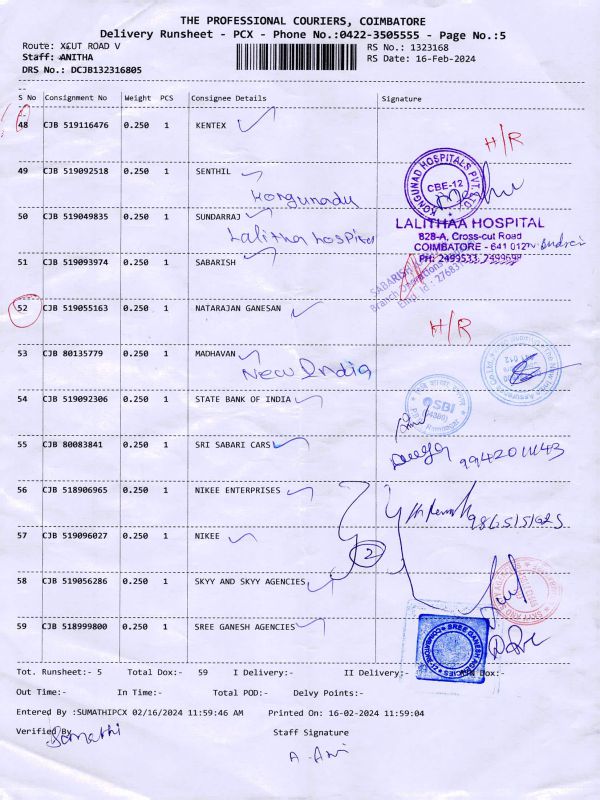 THE PROFESSIONAL COURIERS, COIMBATORE
Delivery Runsheet - PCX - Phone No.:0422-3505555 - Page No.:5
Route: XCUT ROAD V
RS No.: 1323168
Staff: ANITHA
RS Date: 16-Feb-2024
DRS No.: DCJB132316805
S No Consignment No Weight PCS Consignee Details Signature
48 CJB 519116476 0.250 1 KENTEX
H/R
49 CJB 519092518 0.250 1 SENTHIL
Kongunadu
KONGUNAD HOSPITALS PVT. LTD.
CBE-12
50 CJB 519049835 0.250 1 SUNDARRAJ
Lalitha hospital
LALITHAA HOSPITAL
828-A, Cross-cut Road
COIMBATORE - 641 012
PH: 2499533, 2499699
51 CJB 519093974 0.250 1 SABARISH
SABARISH
Branch Operations
52 CJB 519055163 0.250 1 NATARAJAN GANESAN
H/R
53 CJB 80135779 0.250 1 MADHAVAN
New India
54 CJB 519092306 0.250 1 STATE BANK OF INDIA
SBI
55 CJB 80083841 0.250 1 SRI SABARI CARS
56 CJB 518906965 0.250 1 NIKEE ENTERPRISES
57 CJB 519096027 0.250 1 NIKEE
2
58 CJB 519056286 0.250 1 SKYY AND SKYY AGENCIES
59 CJB 518999800 0.250 1 SREE GANESH AGENCIES
SREE GANESH AGENCIES
COIMBATORE
Tot. Runsheet:- 5 Total Dox:- 59 I Delivery:- II Delivery:- Dox:-
Out Time:- In Time:- Total POD:- Delvy Points:-
Entered By :SUMATHIPCX 02/16/2024 11:59:46 AM Printed On: 16-02-2024 11:59:04
Verified By
Staff Signature
Sumathi